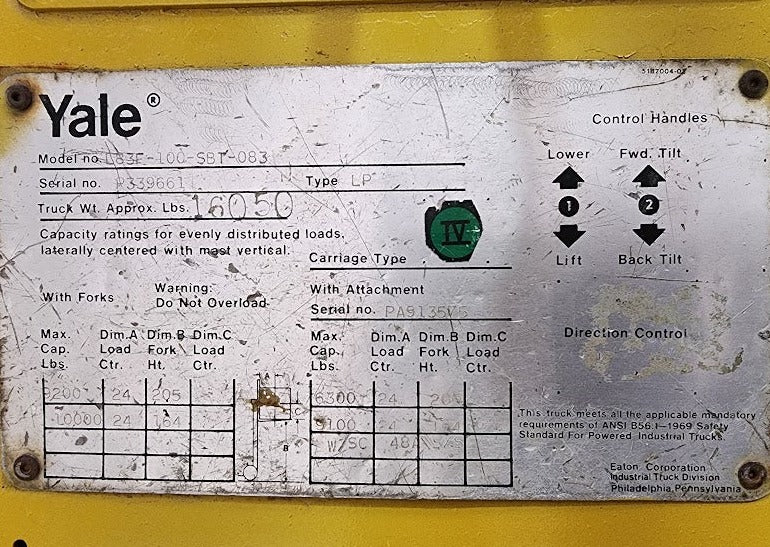 5187004-02
Yale®
Control Handles
Model no. L83E-100-SBT-083
Lower Fwd. Tilt
Serial no. P339661 Type LP
Truck Wt. Approx. Lbs. 16050
1 2
Capacity ratings for evenly distributed loads,
laterally centered with mast vertical.
IV
Carriage Type
Lift Back Tilt
Warning:
With Forks Do Not Overload
With Attachment
Serial no.
Direction Control
Max. Dim.A Dim.B Dim.C
Cap. Load Fork Load
Lbs. Ctr. Ht. Ctr.
Max. Dim.A Dim.B Dim.C
Cap. Load Fork Load
Lbs. Ctr. Ht. Ctr.
A
C
B
9200 24 205
10000 24 164
6300 24
24
W/SC
This truck meets all the applicable mandatory
requirements of ANSI B56.1-1969 Safety
Standard For Powered Industrial Trucks.
Eaton Corporation
Industrial Truck Division
Philadelphia, Pennsylvania